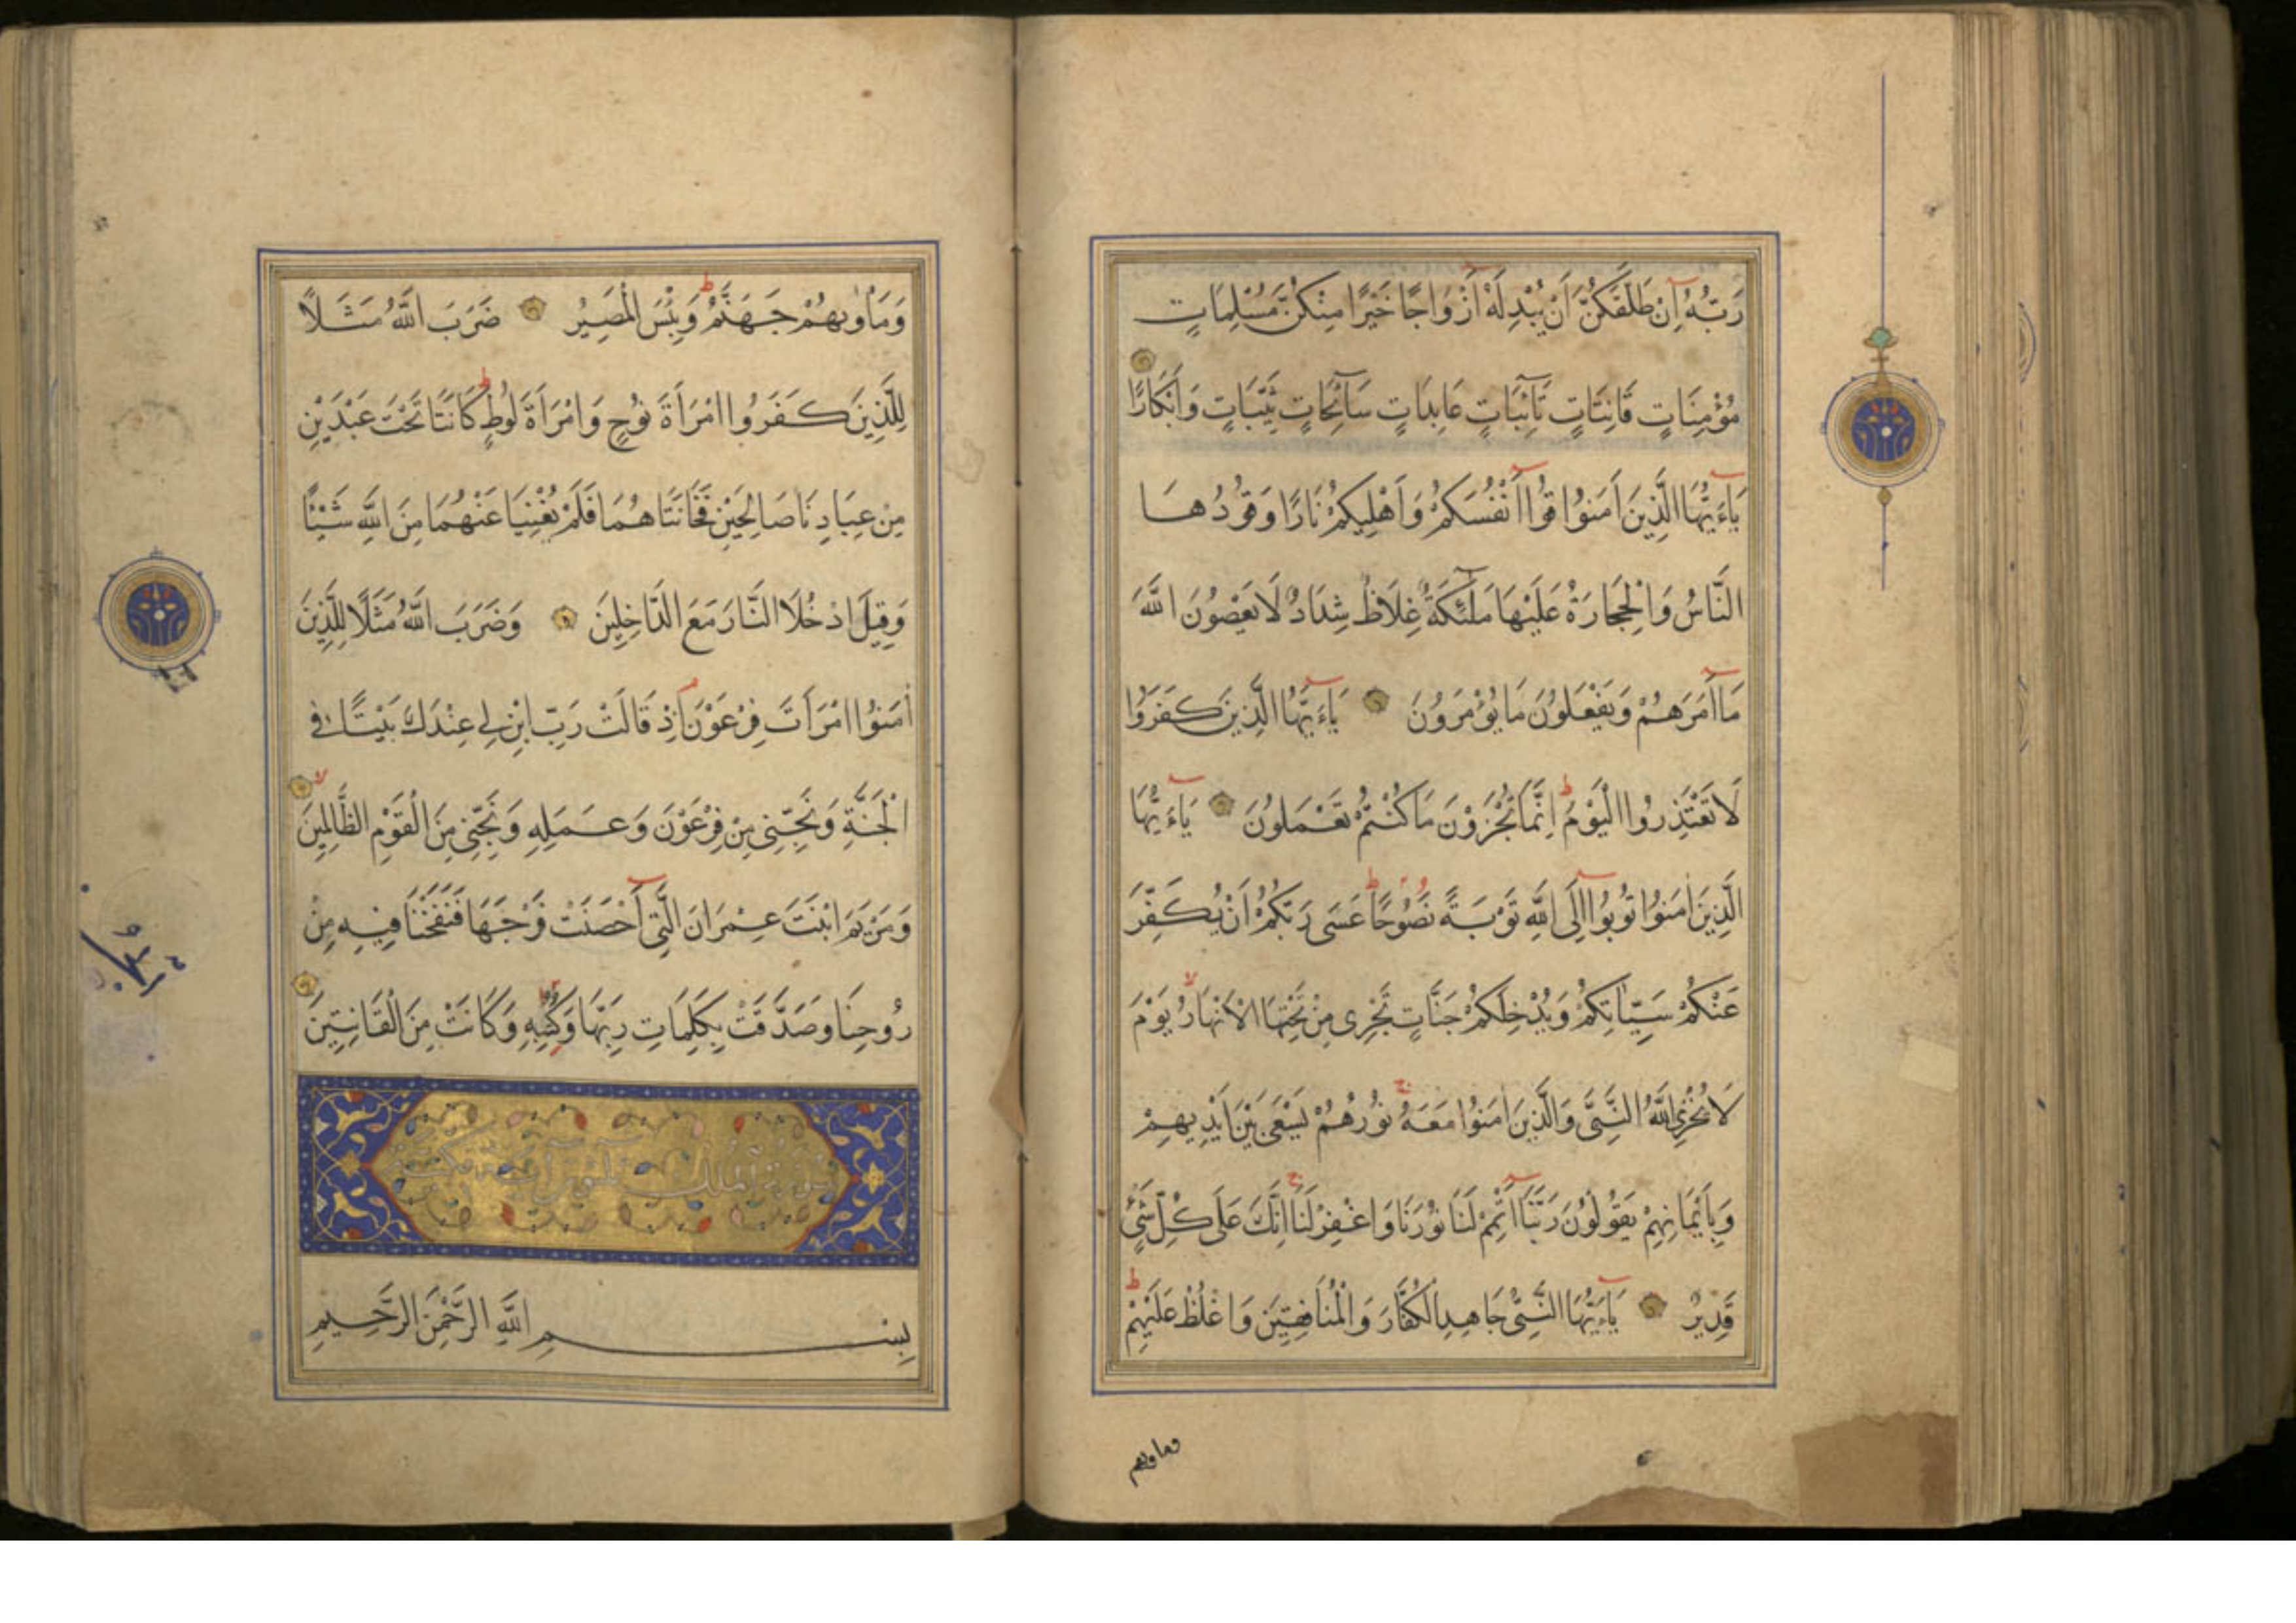 رَبُّهُ اِنْ طَلَّقَكُنَّ اَنْ يُبْدِلَهُ اَزْوَاجًا خَيْرًا مِنْكُنَّ مُسْلِمَاتٍ
مُؤْمِنَاتٍ قَانِتَاتٍ تَآئِبَاتٍ عَابِدَاتٍ سَآئِحَاتٍ ثَيِّبَاتٍ وَاَبْكَارًا
يَآءَيُّهَا الَّذِينَ اٰمَنُوا قُوآ اَنْفُسَكُمْ وَاَهْلِيكُمْ نَارًا وَقُودُهَا
النَّاسُ وَالْحِجَارَةُ عَلَيْهَا مَلٰٓئِكَةٌ غِلَاظٌ شِدَادٌ لَا يَعْصُونَ اللّٰهَ
مَآ اَمَرَهُمْ وَيَفْعَلُونَ مَا يُؤْمَرُونَ يَآءَيُّهَا الَّذِينَ كَفَرُوا
لَا تَعْتَذِرُوا الْيَوْمَ اِنَّمَا تُجْزَوْنَ مَا كُنْتُمْ تَعْمَلُونَ يَآءَيُّهَا
الَّذِينَ اٰمَنُوا تُوبُوآ اِلَى اللّٰهِ تَوْبَةً نَصُوحًا عَسَى رَبُّكُمْ اَنْ يُكَفِّرَ
عَنْكُمْ سَيِّئَاتِكُمْ وَيُدْخِلَكُمْ جَنَّاتٍ تَجْرِى مِنْ تَحْتِهَا الْاَنْهَارُ يَوْمَ
لَا يُخْزِى اللّٰهُ النَّبِىَّ وَالَّذِينَ اٰمَنُوا مَعَهُ نُورُهُمْ يَسْعَى بَيْنَ اَيْدِيهِمْ
وَبِاَيْمَانِهِمْ يَقُولُونَ رَبَّنَآ اَتْمِمْ لَنَا نُورَنَا وَاغْفِرْ لَنَا اِنَّكَ عَلَى كُلِّ شَىْءٍ
قَدِيرٌ يَآءَيُّهَا النَّبِىُّ جَاهِدِ الْكُفَّارَ وَالْمُنَافِقِينَ وَاغْلُظْ عَلَيْهِمْ
وماويهم
وَمَأْوٰيهُمْ جَهَنَّمُ وَبِئْسَ الْمَصِيرُ ضَرَبَ اللّٰهُ مَثَلًا
لِلَّذِينَ كَفَرُوا امْرَاَةَ نُوحٍ وَامْرَاَةَ لُوطٍ كَانَتَا تَحْتَ عَبْدَيْنِ
مِنْ عِبَادِنَا صَالِحَيْنِ فَخَانَتَاهُمَا فَلَمْ يُغْنِيَا عَنْهُمَا مِنَ اللّٰهِ شَيْئًا
وَقِيلَ ادْخُلَا النَّارَ مَعَ الدَّاخِلِينَ وَضَرَبَ اللّٰهُ مَثَلًا لِلَّذِينَ
اٰمَنُوا امْرَاَتَ فِرْعَوْنَ اِذْ قَالَتْ رَبِّ ابْنِ لِى عِنْدَكَ بَيْتًا فِى
الْجَنَّةِ وَنَجِّنِى مِنْ فِرْعَوْنَ وَعَمَلِهِ وَنَجِّنِى مِنَ الْقَوْمِ الظَّالِمِينَ
وَمَرْيَمَ ابْنَتَ عِمْرَانَ الَّتِىٓ اَحْصَنَتْ فَرْجَهَا فَنَفَخْنَا فِيهِ مِنْ
رُوحِنَا وَصَدَّقَتْ بِكَلِمَاتِ رَبِّهَا وَكُتُبِهِ وَكَانَتْ مِنَ الْقَانِتِينَ
سورة الملك ثلثون آية مكية
بِسْمِ اللّٰهِ الرَّحْمٰنِ الرَّحِيمِ